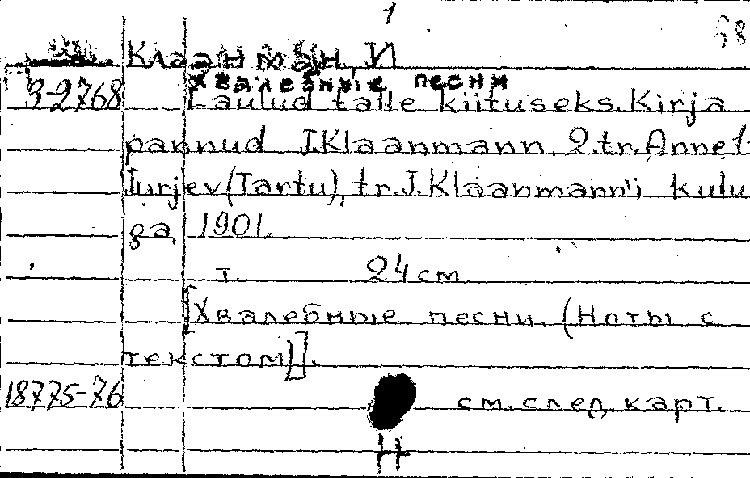 1
68
Клаанман, И
Хвалебные песни
3-2768 Laulud talle kiituseks. Kirja
pannud J.Klaanmann 2.tr. Annet
Jurjev(Tartu), tr.J.Klaanmann'i kulu
ga, 1901.
т. 24 см
[Хвалебные песни. (Ноты с
текстом)].
18775-76 см. след. карт.